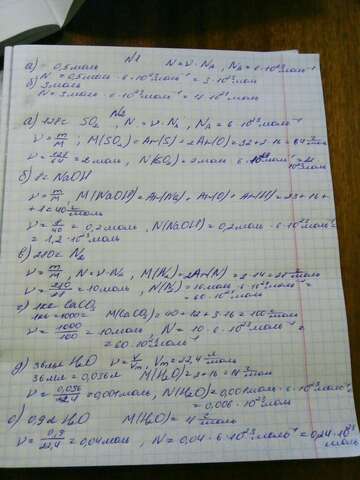 N1
а) 0,5моль N = ν · Nₐ, Nₐ = 6 · 10²³моль⁻¹
N = 0,5моль · 6 · 10²³моль⁻¹ = 3 · 10²³моль
б) 3моль
N = 3моль · 6 · 10²³моль⁻¹ =
N2
а) 128г SO₂, N = ν · Nₐ, Nₐ = 6 · 10²³моль⁻¹
ν = m/M, M(SO₂) = Ar(S) + 2Ar(O) = 32 + 2 · 16 = 64 г/моль
ν = 128/64 = 2моль, N(SO₂) = 2моль · 6 ·
б) 8г NaOH
ν = m/M, M(NaOH) = Ar(Na) + Ar(O) + Ar(H) = 23 + 16 +
+ 1 = 40 г/моль
ν = 8/40 = 0,2моль, N(NaOH) = 0,2моль · 6 · 10²³моль⁻¹
= 1,2 · 10²³моль
в) 280г N₂
ν = m/M, N = ν · Nₐ, M(N₂) = 2Ar(N) = 2 · 14 = 28 г/моль
ν = 280/28 = 10моль, N(N₂) = 10моль · 6 · 10²³моль⁻¹ =
= 60 · 10²³моль⁻¹
г) 1кг CaCO₃
1кг = 1000г M(CaCO₃) = 40 + 12 + 3 · 16 = 100 г/моль
ν = 1000/100 = 10моль, N = 10 · 6 · 10²³моль⁻¹ =
= 60 · 10²³моль⁻¹
д) 36мл H₂O ν = V/Vₘ, Vₘ = 22,4
36мл = 0,036л M(H₂O) = 2 + 16 = 18 г/моль
ν = 0,036/22,4 = 0,001моль, N(H₂O) = 0,001моль · 6 · 10²³моль⁻¹
= 0,006 · 10²³моль
е) 0,9л H₂O M(H₂O) = г/моль
ν = 0,9/22,4 = 0,04моль, N = 0,04 · 6 · 10²³моль⁻¹ = 0,24 · 10²³
моль